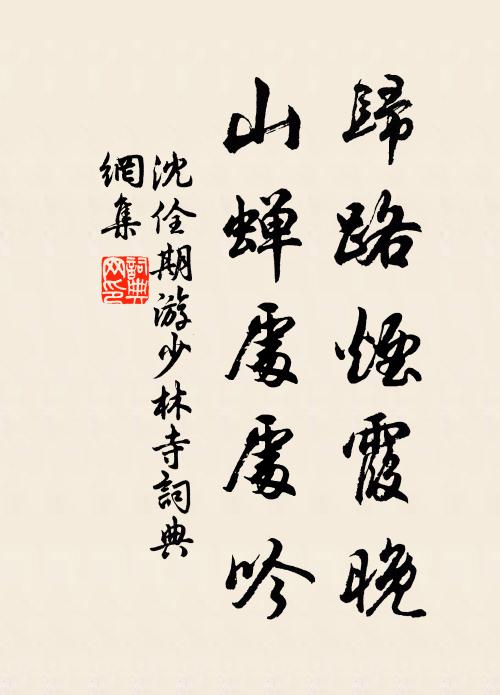 歸路煙霞晚
山蟬處處吟
沈佺期游少林寺詞典
網集
詞典網印